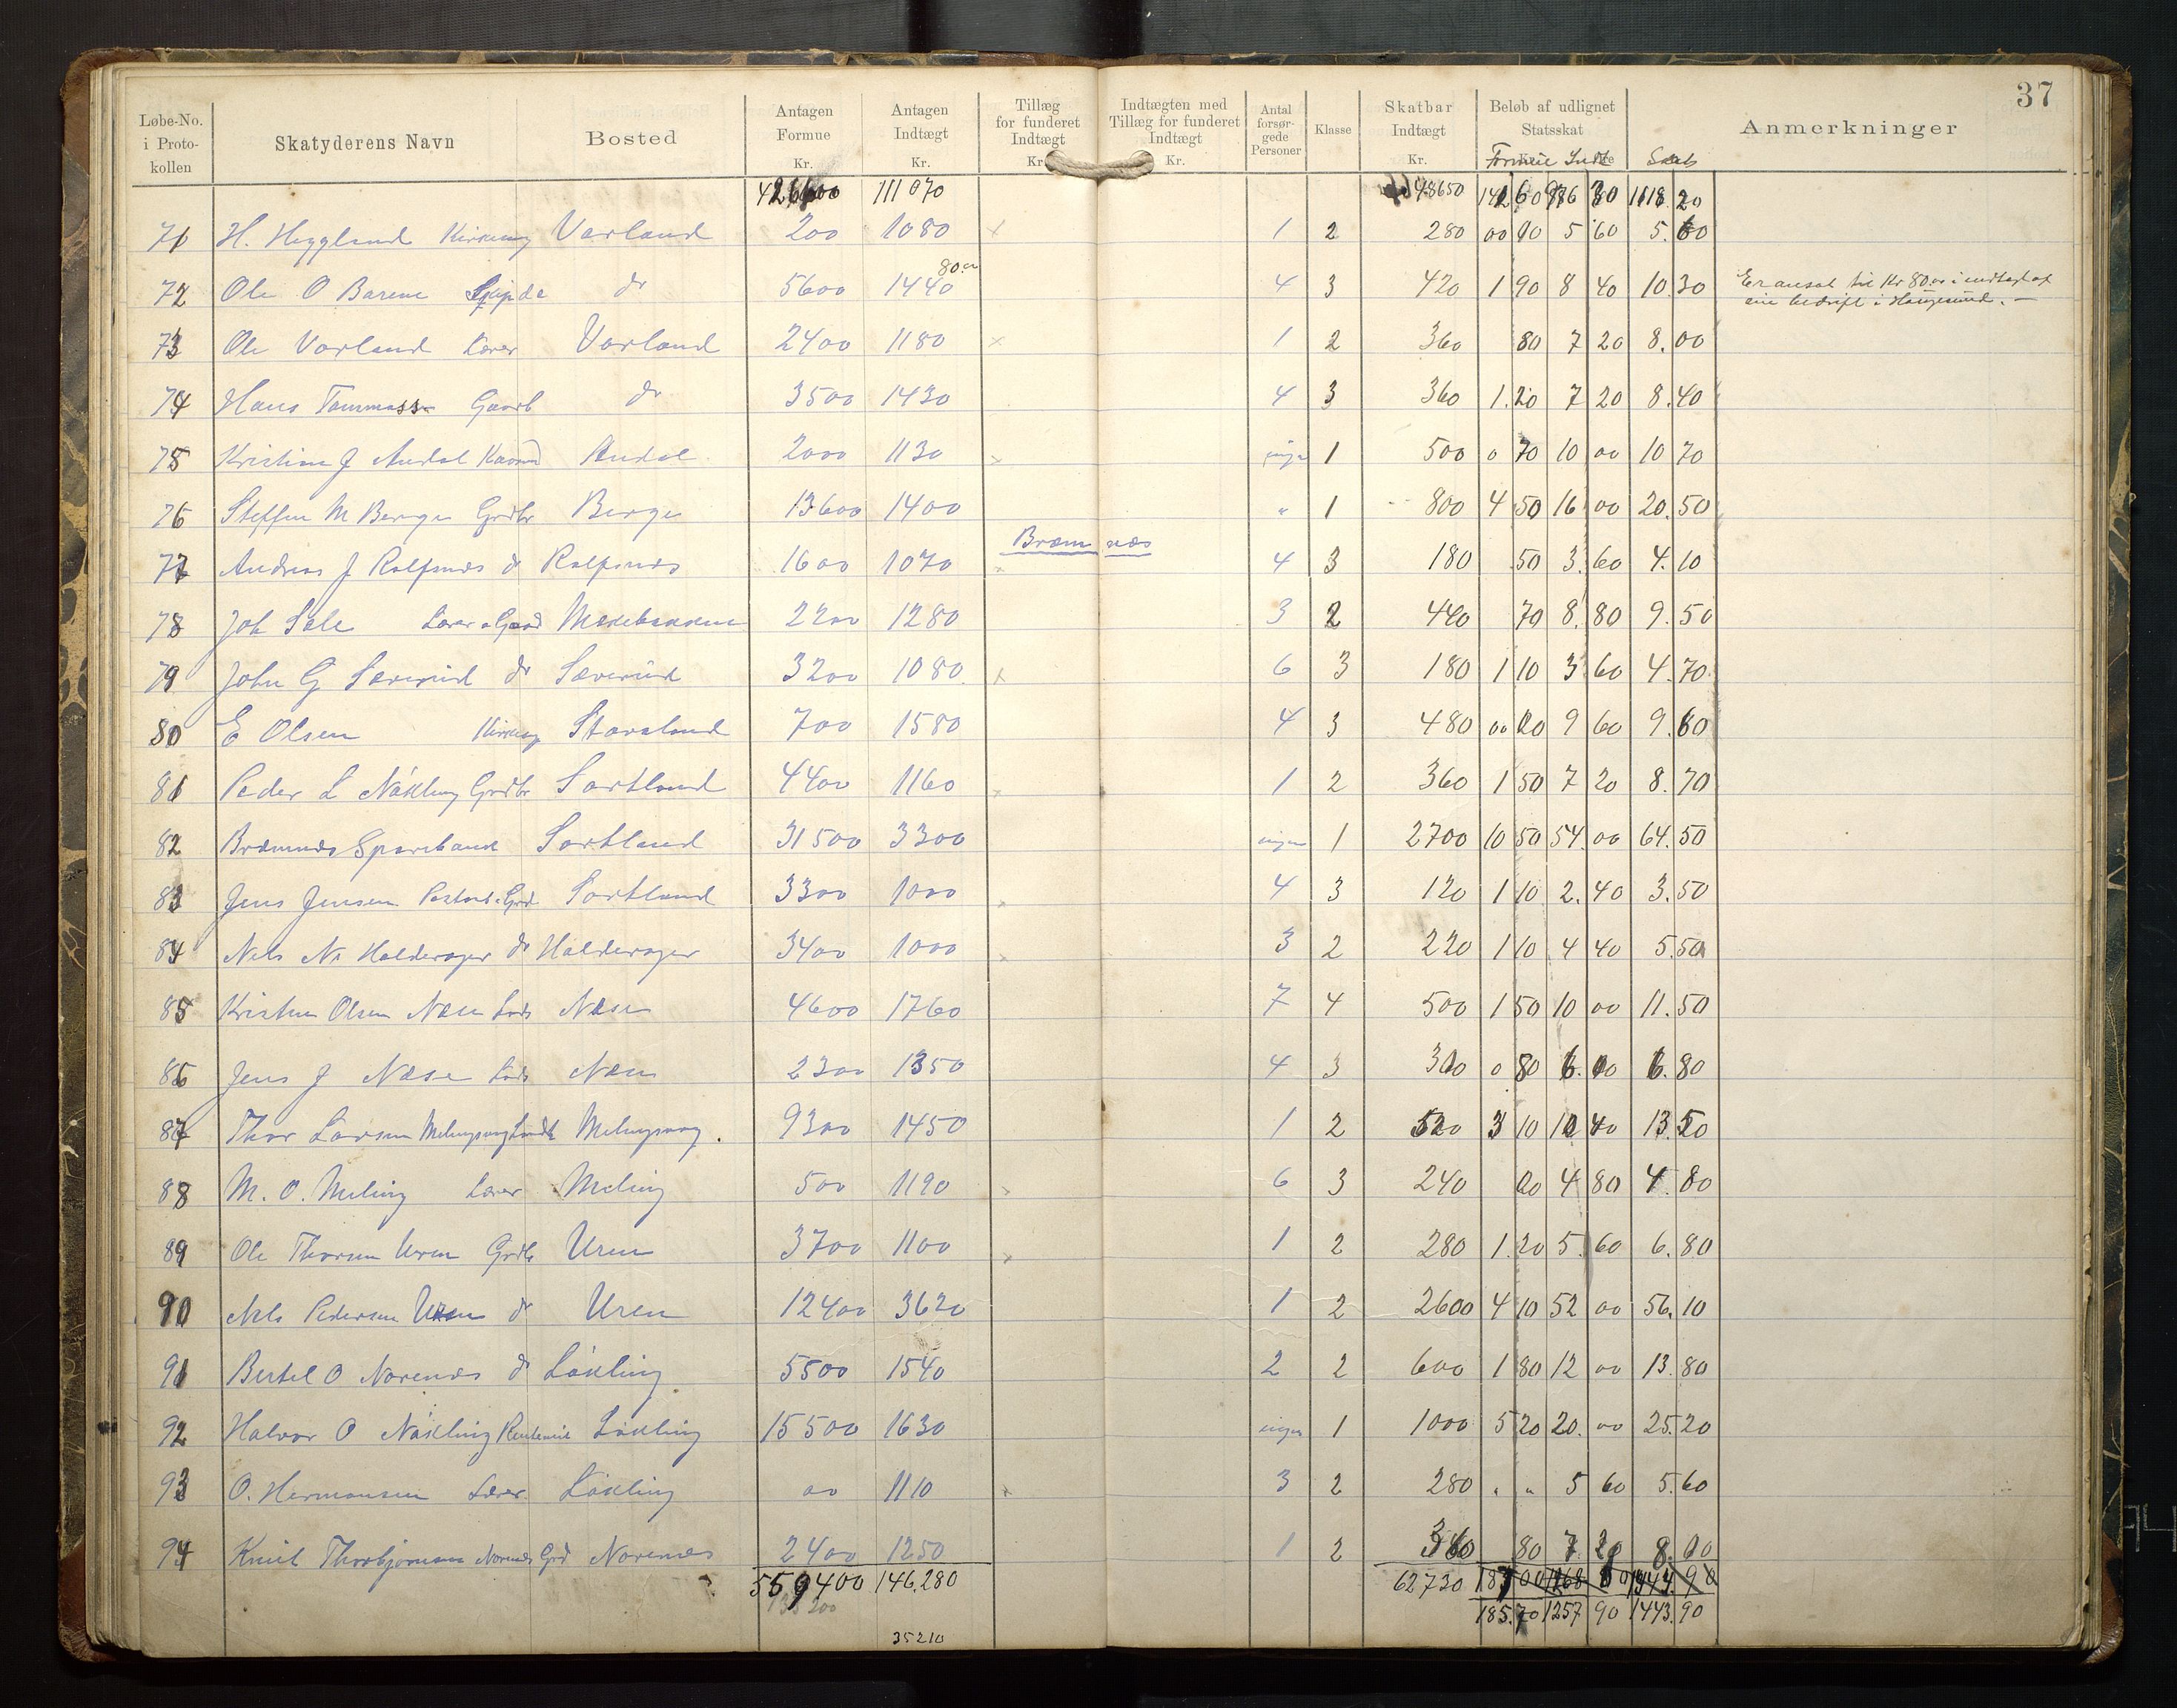 37
Løbe-No. i Protokollen | Skatyderens Navn | Bosted | Antagen Formue Kr. | Antagen Indtægt Kr. | Tillæg for funderet Indtægt Kr. | Indtægten med Tillæg for funderet Indtægt Kr. | Antal forsørgede Personer | Klasse | Skatbar Indtægt Kr. | Beløb af udlignet Statsskat | Anmerkninger
Formue Indt Skat
111070 48650 20
71 H. Heggland Kirkesng Varland 200 1080 x 1 2 280 00 10 5 60 5.60
72 Ole O Barene do 5600 1440 80.00 4 3 420 1 90 8 40 10 30 Er ansat til Kr 80.00 i indtægt af
sin bedrift i Haugesund. —
73 Ole Varland Lærer Varland 2400 1180 x 1 2 360 80 7 20 8.00
74 Hans Tommassen Gaarb do 3500 1430 4 3 360 1.20 7 20 8.40
75 Kristian J Andal Andal 2000 1130 x ingen 1 500 0 70 10 00 10 70
76 Steffen M Berge Grdbr Berge 13600 1400 " 1 800 4 50 16 00 20.50
Bremnæs
77 Andreas J Rolfsnes do Rolfsnes 1600 1070 x 4 3 180 50 3.60 4.10
78 Joh Sele Lærer Gaard Mækebakken 2200 1280 3 2 440 70 8.80 9.50
79 John G Sæverud do Sæverud 3200 1080 x 6 3 180 1 10 3 60 4.70
80 E Olsen Kirkesng Stavsland 700 1580 4 3 480 00 20 9 60 9.60
81 Peder L Nákling Grdbr Sortland 4400 1160 x 1 2 360 1 50 7 20 8.70
82 Bremnæs Sparebank Sortland 31500 3300 ingen 1 2700 10 50 54.00 64.50
83 Jens Jensen Grd Sortland 3300 1000 x 4 3 120 1 10 2.40 3.50
84 Nels Ns Halderager do Halderager 3400 1000 x 3 2 220 1 10 4 40 5.50
85 Kristen Olsen Næse Lods Næse 4600 1760 7 4 500 1 50 10 00 11.50
86 Jens J Næse Lods Næse 2300 1350 4 3 300 0 80 6.00 6.80
87 Thor Larsen Melingsvag Melingsvag. 9300 1450 1 2 520 3 10 10 40 13.50
88 M. O. Meling Lærer Meling 500 1190 x 6 3 240 20 4 80 4.80
89 Ole Thorsen Uren Grdbr Uren 3700 1100 x 1 2 280 1.20 5.60 6.80
90 Nels Pedersen Uren do Uren 12400 3620 1 2 2600 4 10 52 00 56.10
91 Bertel O Norenæs do Lákling 5500 1540 2 2 600 1 80 12 00 13.80
92 Halvor O Nákling Rentenir Lákling 15500 1630 ingen 1 1000 5 20 20.00 25.20
93 O. Hermansen Lærer Lákling 00 1110 x 3 2 280 " " 5 60 5.60
94 Knut Thorbjørnsen Norenæs Grd Norenæs 2400 1250 1 2 360 80 7 20 8.00
559400 146.280 62730
185.70 1257 90 1443.90
35210